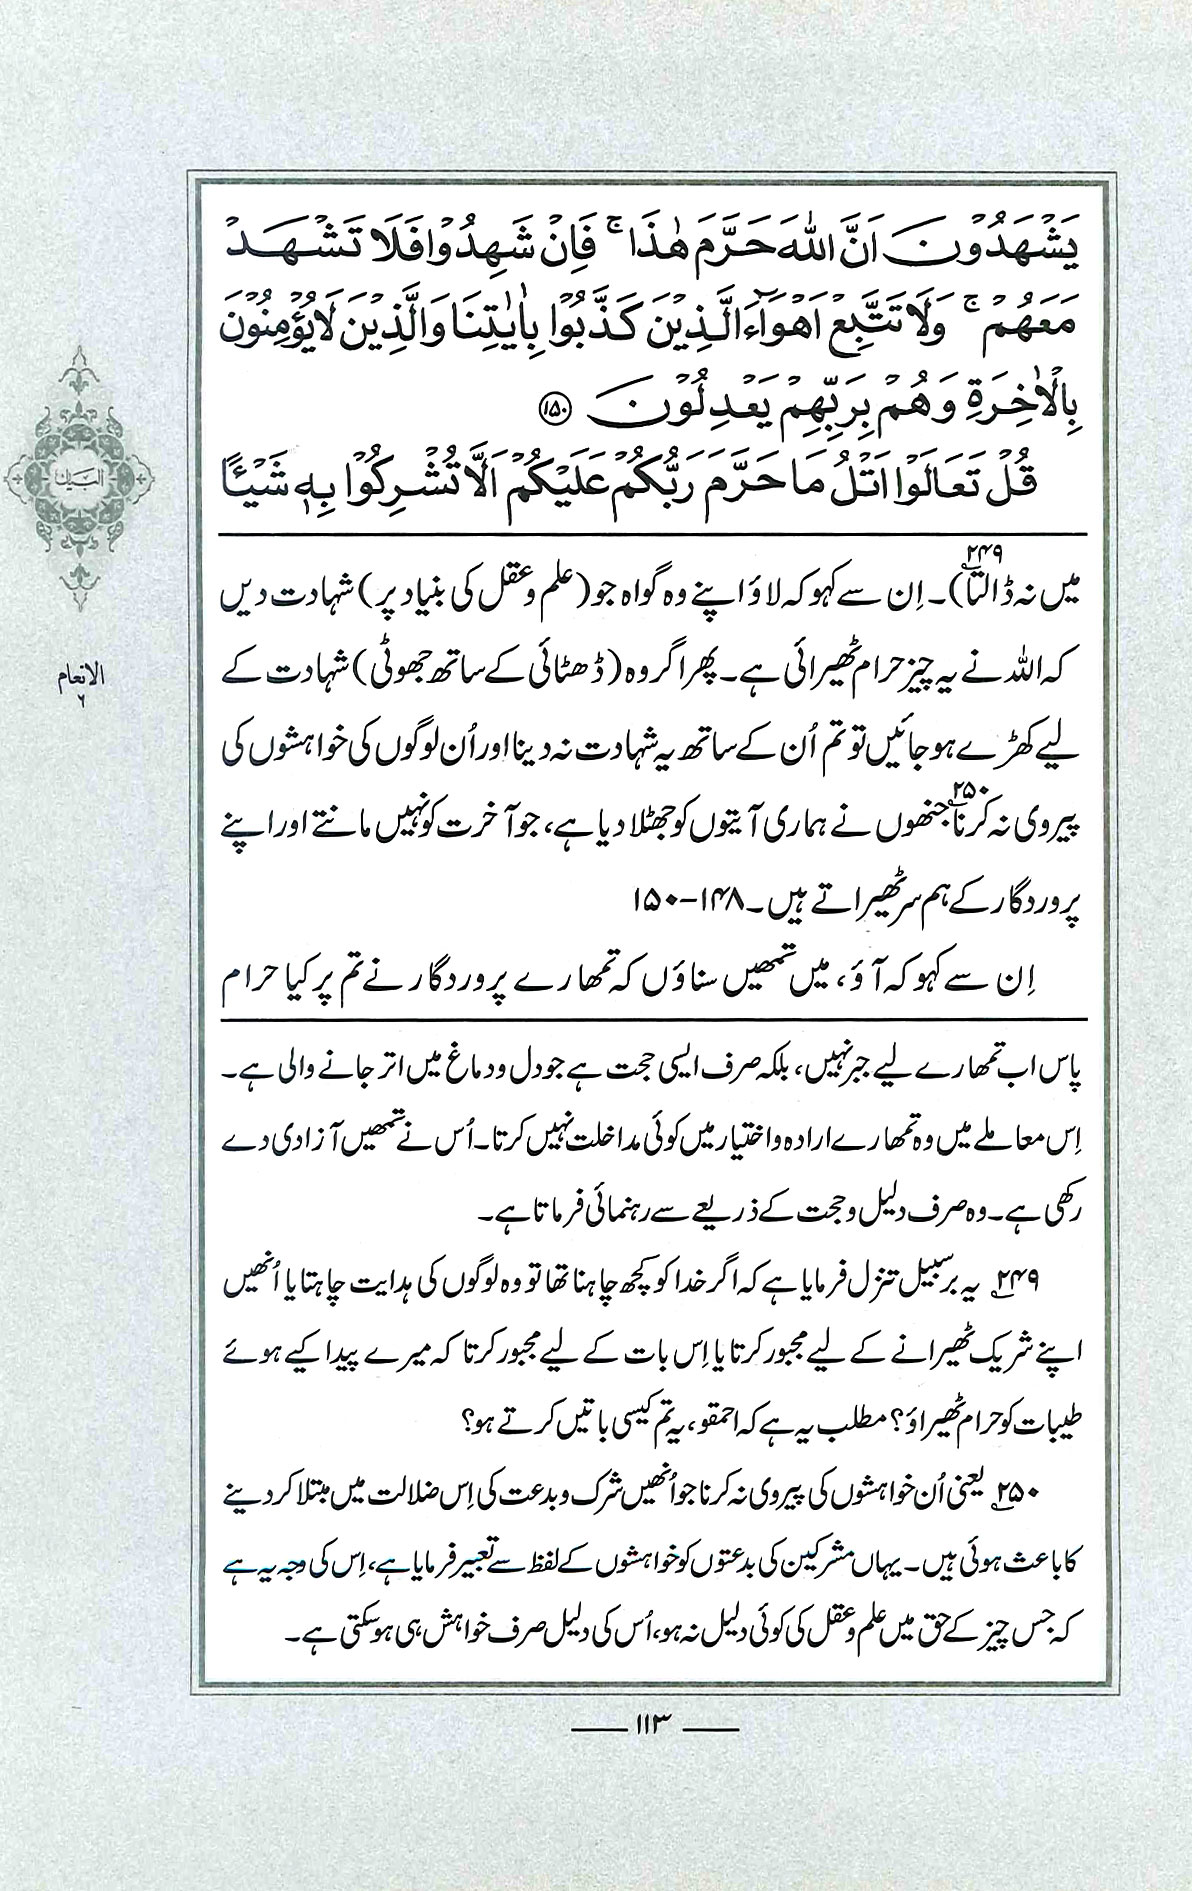 یَشۡہَدُوۡنَ اَنَّ اللّٰہَ حَرَّمَ ہٰذَا ۚ فَاِنۡ شَہِدُوۡا فَلَا تَشۡہَدۡ
مَعَہُمۡ ۚ وَلَا تَتَّبِعۡ اَہۡوَآءَ الَّذِیۡنَ کَذَّبُوۡا بِاٰیٰتِنَا وَالَّذِیۡنَ لَا یُؤۡمِنُوۡنَ
بِالۡاٰخِرَۃِ وَہُمۡ بِرَبِّہِمۡ یَعۡدِلُوۡنَ ﴿۱۵۰﴾
قُلۡ تَعَالَوۡا اَتۡلُ مَا حَرَّمَ رَبُّکُمۡ عَلَیۡکُمۡ اَلَّا تُشۡرِکُوۡا بِہٖ شَیۡـًٔا
میں نہ ڈالتا۲۴۹)۔ اِن سے کہو کہ لاؤ اپنے وہ گواہ جو (علم و عقل کی بنیاد پر) شہادت دیں
کہ اللہ نے یہ چیز حرام ٹھیرائی ہے۔ پھر اگر وہ (ڈھٹائی کے ساتھ جھوٹی) شہادت کے
لیے کھڑے ہو جائیں تو تم اُن کے ساتھ یہ شہادت نہ دینا اور اُن لوگوں کی خواہشوں کی
پیروی نہ کرنا۲۵۰ جنھوں نے ہماری آیتوں کو جھٹلا دیا ہے، جو آخرت کو نہیں مانتے اور اپنے
پروردگار کے ہم سر ٹھیراتے ہیں۔ ۱۴۸-۱۵۰
اِن سے کہو کہ آؤ، میں تمھیں سناؤں کہ تمھارے پروردگار نے تم پر کیا حرام
پاس اب تمھارے لیے جبر نہیں، بلکہ صرف ایسی حجت ہے جو دل و دماغ میں اتر جانے والی ہے۔
اِس معاملے میں وہ تمھارے ارادہ و اختیار میں کوئی مداخلت نہیں کرتا۔ اُس نے تمھیں آزادی دے
رکھی ہے۔ وہ صرف دلیل و حجت کے ذریعے سے رہنمائی فرماتا ہے۔
۲۴۹؎ یہ برسبیل تنزل فرمایا ہے کہ اگر خدا کو کچھ چاہنا تھا تو وہ لوگوں کی ہدایت چاہتا یا اُنھیں
اپنے شریک ٹھیرانے کے لیے مجبور کرتا یا اِس بات کے لیے مجبور کرتا کہ میرے پیدا کیے ہوئے
طیبات کو حرام ٹھیراؤ؟ مطلب یہ ہے کہ احمقو، یہ تم کیسی باتیں کرتے ہو؟
۲۵۰؎ یعنی اُن خواہشوں کی پیروی نہ کرنا جو اُنھیں شرک و بدعت کی اِس ضلالت میں مبتلا کر دینے
کا باعث ہوئی ہیں۔ یہاں مشرکین کی بدعتوں کو خواہشوں کے لفظ سے تعبیر فرمایا ہے، اِس کی وجہ یہ ہے
کہ جس چیز کے حق میں علم و عقل کی کوئی دلیل نہ ہو، اُس کی دلیل صرف خواہش ہی ہو سکتی ہے۔
البیان
الانعام
۶
۱۱۳